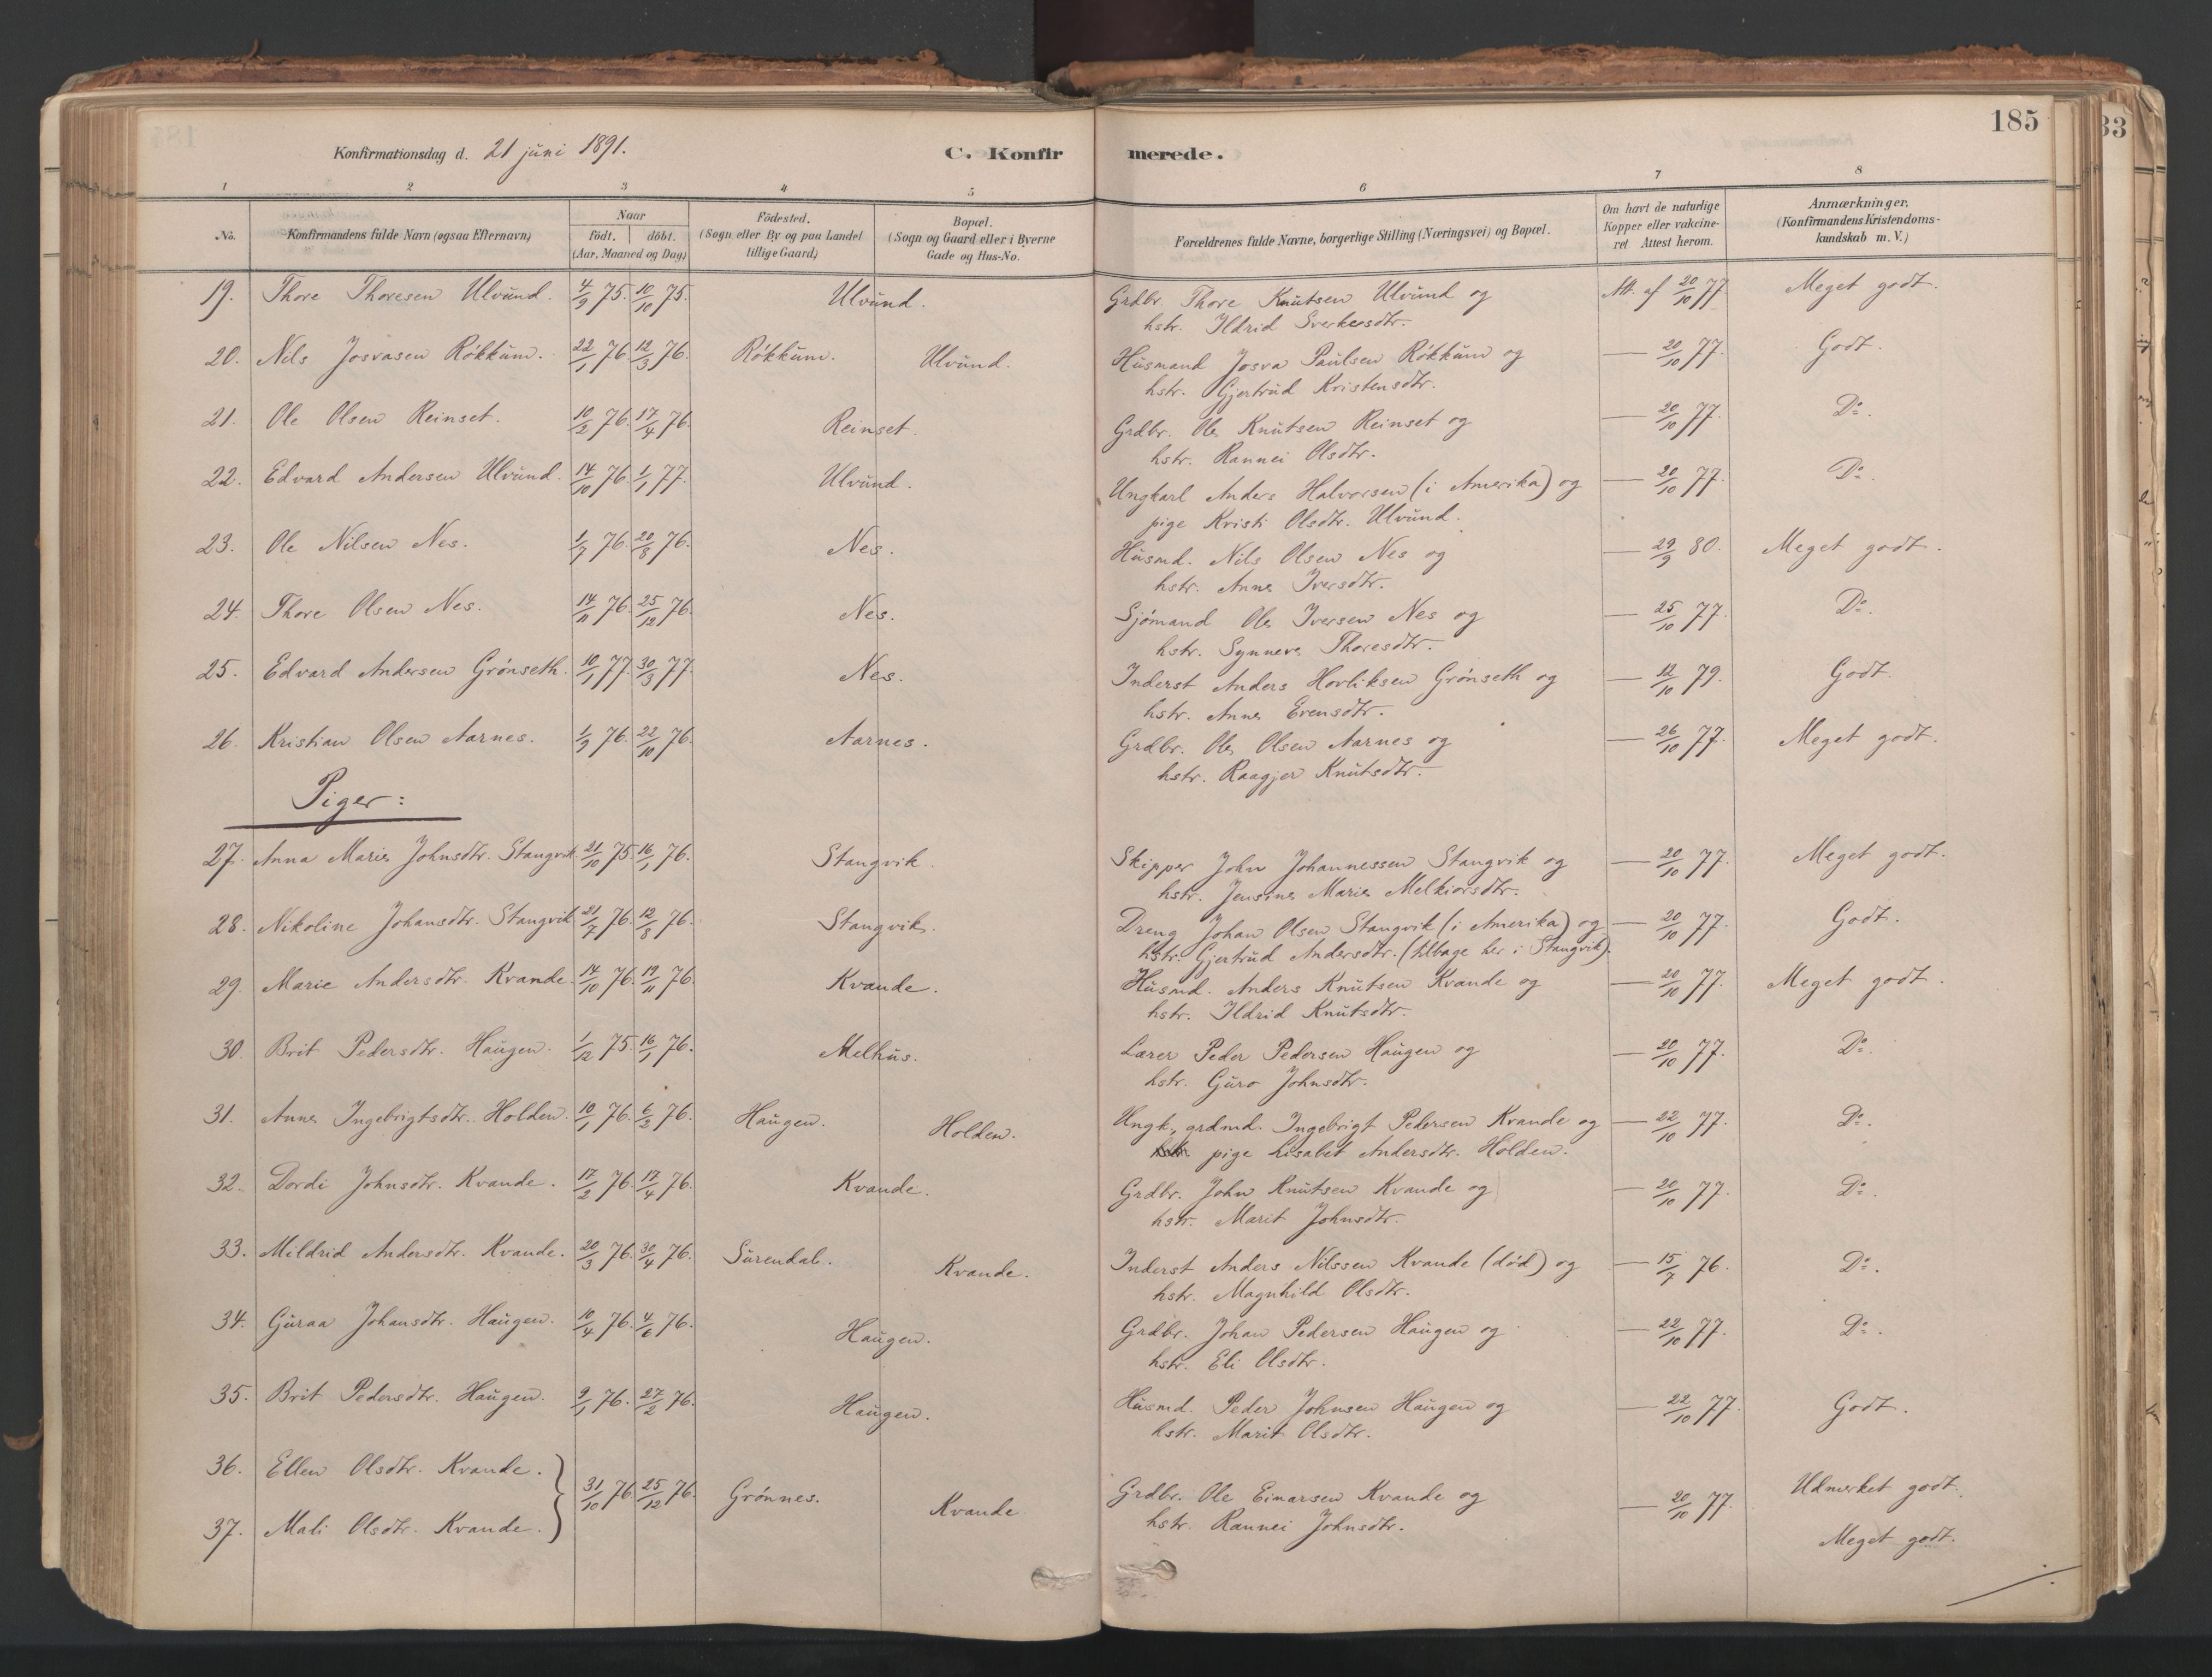 185
Konfirmationsdag d. 21 juni 1891.
C. Konfirmerede.
1 2 3 4 5 6 7 8
No.
Konfirmandens fulde Navn (ogsaa Efternavn)
Naar
födt. döbt.
(Aar, Maaned og Dag)
Födested.
(Sogn eller By og paa Landet
tillige Gaard)
Bopæl.
(Sogn og Gaard eller i Byerne
Gade og Hus-No.
Forældrenes fulde Navne, borgerlige Stilling (Næringsvei) og Bopæl.
Om havt de naturlige
Kopper eller vakcine-
ret Attest herom.
Anmærkninger,
(Konfirmandens Kristendoms-
kundskab m. V.)
19. Thore Thoresen Ulvund. 4/9 75. 10/10 75. Ulvund. Grdbr. Thore Knutsen Ulvund og Att. af 20/10 77. Meget godt.
hstr. Ildrid Sverkesdtr.
20. Nils Josvasen Rökkum. 22/1 76. 12/3 76. Rökkum. Ulvund. Husmand Josva Paulsen Rökkum og — 20/10 77. Godt.
hstr. Gjertrud Kristensdtr.
21. Ole Olsen Reinset. 10/2 76. 17/4 76. Reinset. Grdbr. Ole Knutsen Reinset og — 20/10 77. Do.
hstr. Rannei Olsdtr.
22. Edvard Andersen Ulvund. 14/10 76. 1/1 77. Ulvund. Ungkarl Anders Halvorsen (i Amerika) og — 20/10 77. Do.
pige Kristi Olsdtr. Ulvund.
23. Ole Nilsen Nes. 1/7 76. 20/8 76. Nes. Husmd. Nils Olsen Nes og — 29/9 80. Meget godt.
hstr. Anne Iversdtr.
24. Thore Olsen Nes. 14/11 76. 25/12 76. Nes. Sjömand Ole Iversen Nes og — 25/10 77. Do.
hstr. Synneve Thoresdtr.
25. Edvard Andersen Grönseth. 10/1 77. 30/3 77. Nes. Inderst Anders Hovliksen Grönseth og — 12/10 79. Godt.
hstr. Anne Evensdtr.
26. Kristian Olsen Aarnes. 1/9 76. 22/10 76. Aarnes. Grdbr. Ole Olsen Aarnes og — 26/10 77. Meget godt.
hstr. Raagjer Knutsdtr.
Piger:
27. Anna Marie Johnsdtr. Stangvik. 21/10 75. 16/1 76. Stangvik. Skipper John Johannessen Stangvik og — 20/10 77. Meget godt.
hstr. Jensine Marie Melkiorsdtr.
28. Nikoline Johansdtr. Stangvik 21/7 76. 12/8 76. Stangvik. Dreng Johan Olsen Stangvik (i Amerika) og — 20/10 77. Godt.
hstr. Gjertrud Andersdtr. (tilbage her i Stangvik).
29. Marie Andersdtr. Kvande. 14/10 76. 19/11 76. Kvande. Husmd. Anders Knutsen Kvande og — 20/10 77. Meget godt.
hstr. Ildrid Knutsdtr.
30. Brit Pedersdtr. Haugen. 1/12 75. 16/1 76. Melhus. Lærer Peder Pedersen Haugen og — 20/10 77. Do.
hstr. Guro Johnsdtr.
31. Anne Ingebrigtsdtr. Holden. 10/1 76. 6/2 76. Haugen. Holden. Ungk., grdmd. Ingebrigt Pedersen Kvande og — 22/10 77. Do.
pige Lisabet Andersdtr. Holden.
32. Dordi Johnsdtr. Kvande. 17/2 76. 17/4 76. Kvande. Grdbr. John Knutsen Kvande og — 20/10 77. Do.
hstr. Marit Johnsdtr.
33. Mildrid Andersdtr. Kvande. 20/3 76. 30/4 76. Surendal. Kvande. Inderst Anders Nilssen Kvande (död) og — 15/7 76. Do.
hstr. Magnhild Olsdtr.
34. Guraa Johansdtr. Haugen. 10/4 76. 4/6 76. Haugen. Grdbr. Johan Pedersen Haugen og — 22/10 77. Do.
hstr. Eli Olsdtr.
35. Brit Pedersdtr. Haugen. 9/1 76. 27/2 76. Haugen. Husmd. Peder Johnsen Haugen og — 22/10 77. Godt.
hstr. Marit Olsdtr.
36. Ellen Olsdtr. Kvande. 31/10 76. 25/12 76. Grönnes. Kvande Grdbr. Ole Einarsen Kvande og — 20/10 77. Udmerket godt.
37. Mali Olsdtr. Kvande. hstr. Rannei Johnsdtr. Meget godt.
33